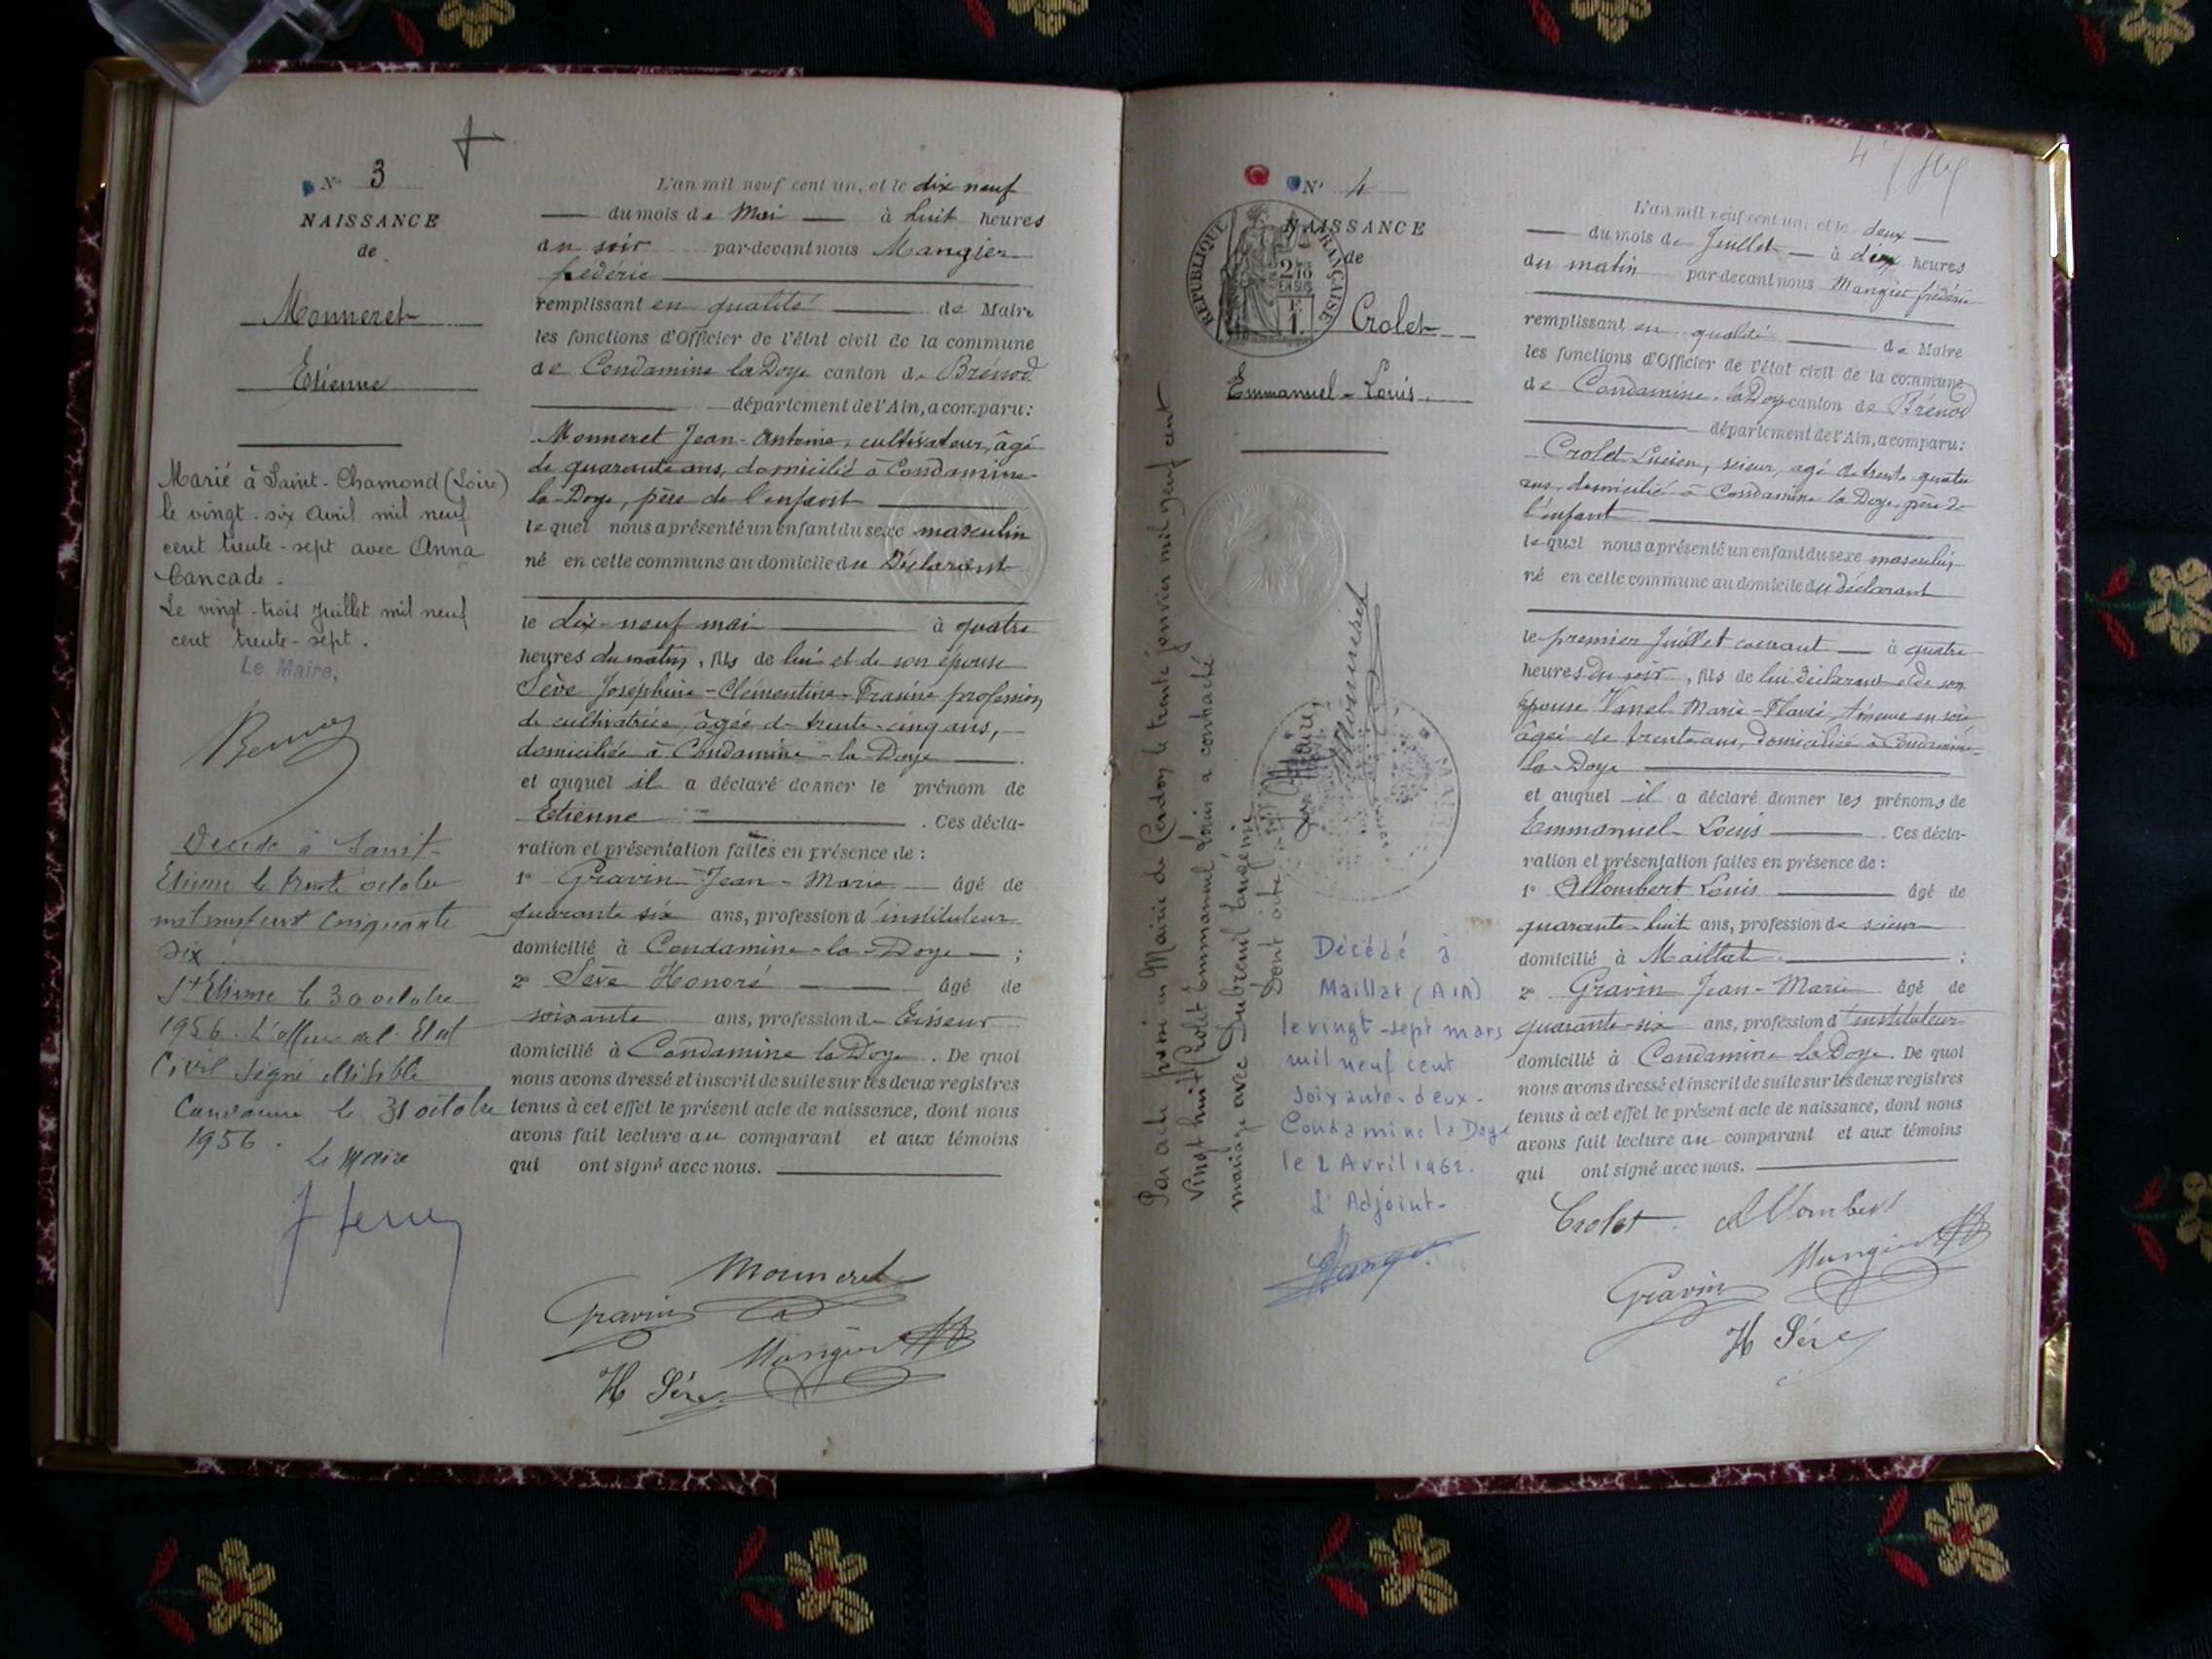 N° 3
NAISSANCE
de
Monneret
Etienne
Marié à Saint-Chamond (Loire)
le vingt-six avril mil neuf
cent trente-sept avec Anna
Cancade.
Le vingt-trois Juillet mil neuf
cent trente-sept.
Le Maire,
Décédé à Saint-
Etienne le trente octobre
mil neuf cent cinquante
six
St Etienne le 30 octobre
1956. L'officier de l'Etat
Civil signé illisible
Condamine le 31 octobre
1956.
Le Maire
L'an mil neuf cent un, et le dix neuf
du mois de Mai à huit heures
du soir par-devant nous Mangier
frédéric
remplissant en qualité de Maire
les fonctions d'Officier de l'état civil de la commune
de Condamine la Doye canton de Brénod
département de l'Ain, a comparu :
Monneret Jean-Antoine, cultivateur, âgé
de quarante ans, domicilié à Condamine-
la-Doye, père de l'enfant
lequel nous a présenté un enfant du sexe masculin
né en cette commune au domicile du Déclarant
le dix-neuf mai à quatre
heures du matin, fils de lui et de son épouse
Sève Joséphine-Clémentine- profession
de cultivatrice, âgée de trente-cinq ans,
domiciliée à Condamine-la-Doye
et auquel il a déclaré donner le prénom de
Etienne . Ces décla-
ration et présentation faites en présence de :
1° Gravin Jean-Marie âgé de
quarante six ans, profession d'instituteur
domicilié à Condamine-la-Doye ;
2° Sève Honoré âgé de
soixante ans, profession de Tisseur
domicilié à Condamine la Doye. De quoi
nous avons dressé et inscrit de suite sur les deux registres
tenus à cet effet le présent acte de naissance, dont nous
avons fait lecture au comparant et aux témoins
qui ont signé avec nous.
Monneret
Gravin
Mangier
H Sève
N° 4
NAISSANCE
de
REPUBLIQUE FRANÇAISE
2/10
EN SUS
F
1
Crolet
Emmanuel-Louis
Par acte en Mairie de Cerdon le trente janvier mil neuf cent
vingt huit Crolet Emmanuel Louis a contracté
mariage avec Dubreuil
Dont acte
Le Maire,
Monneret
Décédé à
Maillat (AIN)
le vingt-sept mars
mil neuf cent
soixante-deux-
Condamine la Doye
le 2 Avril 1962.
L'Adjoint-
L'an mil neuf cent un, et le deux
du mois de Juillet à dix heures
du matin par-devant nous Mangier frédéric
remplissant en qualité de Maire
les fonctions d'Officier de l'état civil de la commune
de Condamine-la Doye canton de Brénod
département de l'Ain, a comparu :
Crolet Lucien, scieur, âgé de trente quatre
ans, domicilié à Condamine la Doye, père de
l'enfant
lequel nous a présenté un enfant du sexe masculin
né en cette commune au domicile du déclarant
le premier Juillet courant à quatre
heures du soir, fils de lui déclarant et de son
épouse Vanel Marie-Flavie,
âgée de trente ans, domiciliée à Condamine-
la-Doye
et auquel il a déclaré donner les prénoms de
Emmanuel-Louis . Ces décla-
ration et présentation faites en présence de :
1° Allombert Louis âgé de
quarante-huit ans, profession de scieur
domicilié à Maillat ;
2° Gravin Jean-Marie âgé de
quarante-six ans, profession d'instituteur
domicilié à Condamine la Doye. De quoi
nous avons dressé et inscrit de suite sur les deux registres
tenus à cet effet le présent acte de naissance, dont nous
avons fait lecture au comparant et aux témoins
qui ont signé avec nous.
Crolet Allombert
Mangier
Gravin
H Sève